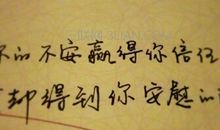 的不安赢得你信任
却得到你安慰的